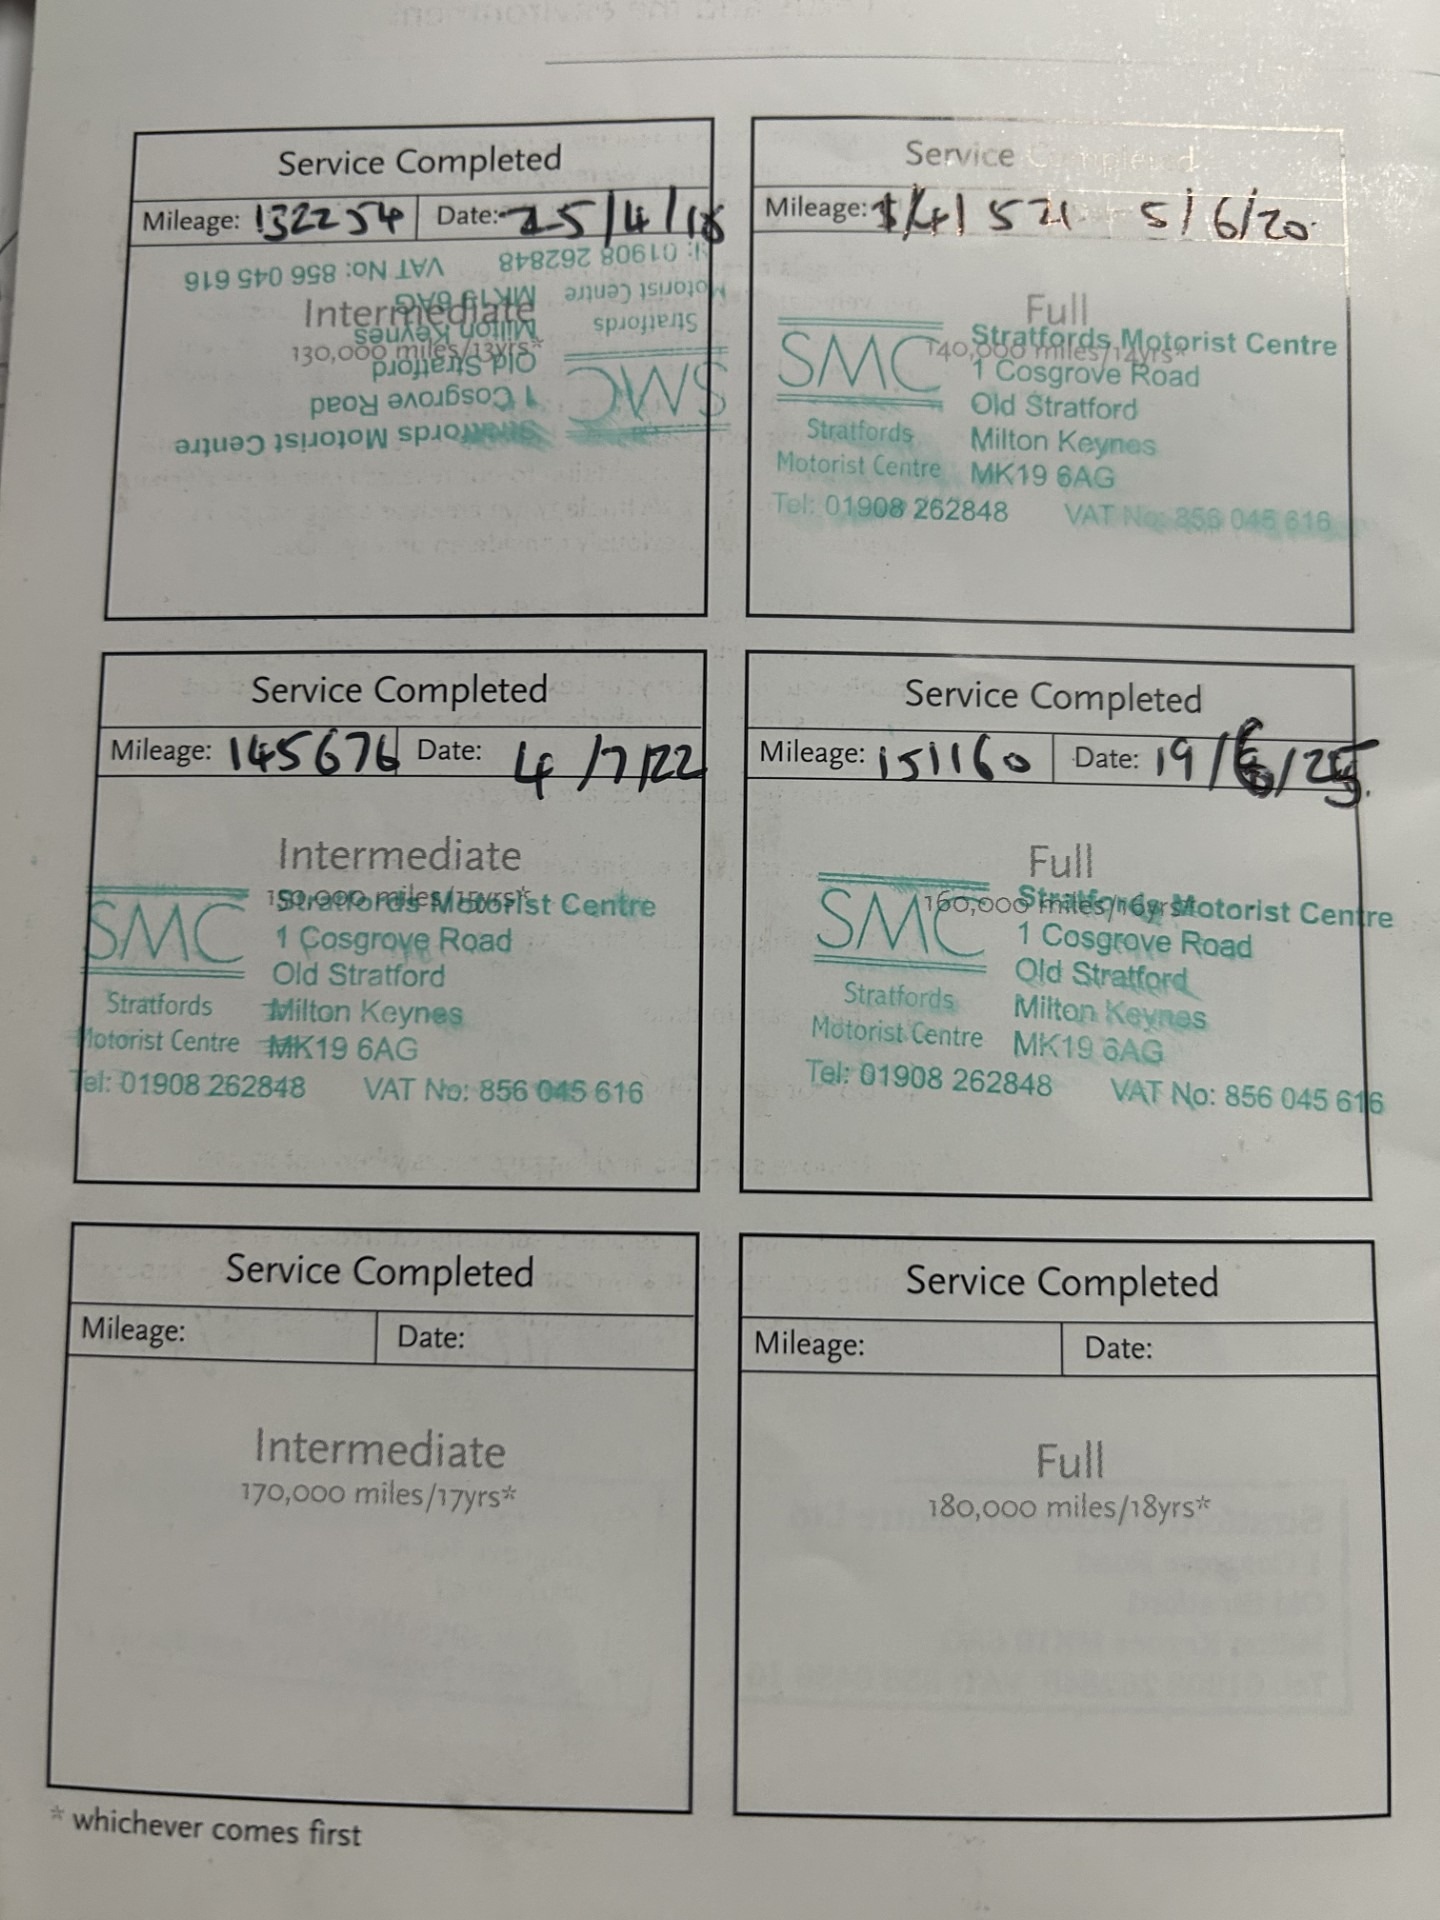 Service Completed
Mileage: 132254 Date: 25/4/18
Tel: 01908 262848 VAT No: 856 045 616
Motorist Centre MK19 6AG
Intermediate
Stratfords Milton Keynes
130,000 miles/13yrs*
Old Stratford
SMC 1 Cosgrove Road
Stratfords Motorist Centre
Service Completed
Mileage: 141521 5/6/20
Full
140,000 miles/14yrs*
SMC Stratfords Motorist Centre
1 Cosgrove Road
Old Stratford
Stratfords Milton Keynes
Motorist Centre MK19 6AG
Tel: 01908 262848 VAT No: 856 045 616
Service Completed
Mileage: 145676 Date: 4/7/22
Intermediate
150,000 miles/15yrs*
SMC Stratfords Motorist Centre
1 Cosgrove Road
Old Stratford
Stratfords Milton Keynes
Motorist Centre MK19 6AG
Tel: 01908 262848 VAT No: 856 045 616
Service Completed
Mileage: 151160 Date: 19/6/25
Full
160,000 miles/16yrs*
SMC Stratfords Motorist Centre
1 Cosgrove Road
Old Stratford
Stratfords Milton Keynes
Motorist Centre MK19 6AG
Tel: 01908 262848 VAT No: 856 045 616
Service Completed
Mileage: Date:
Intermediate
170,000 miles/17yrs*
Service Completed
Mileage: Date:
Full
180,000 miles/18yrs*
* whichever comes first